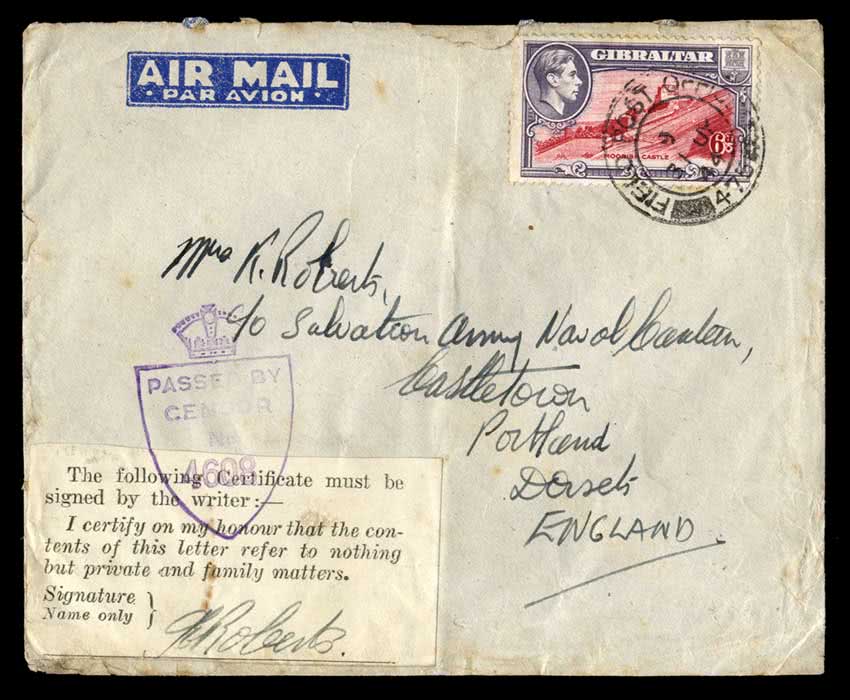 AIR MAIL
· PAR AVION ·
GIBRALTAR
MOORISH CASTLE
6D
FIELD POST OFFICE
9
JU
44
475
Mrs K. Roberts,
c/o Salvation Army Naval Canteen,
Castletown
Portland
Dorset
ENGLAND.
PASSED BY
CENSOR
No.
4608
The following Certificate must be
signed by the writer:—
I certify on my honour that the con-
tents of this letter refer to nothing
but private and family matters.
Signature
Name only
Roberts.